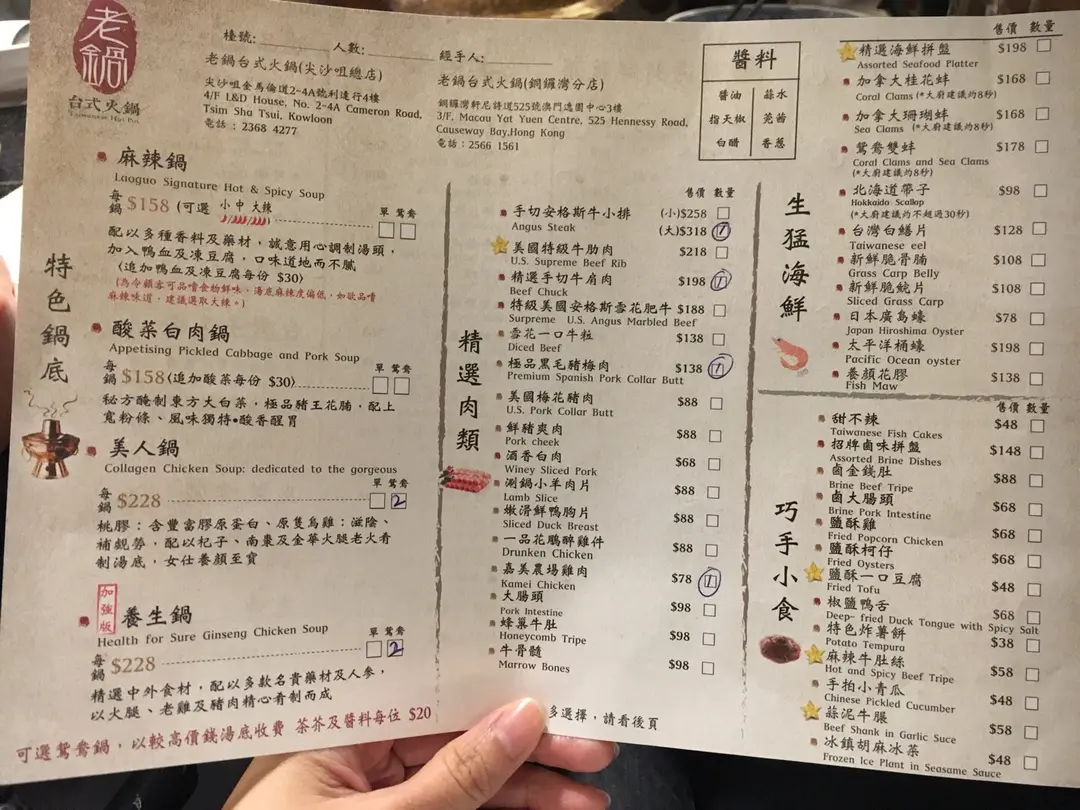 老鍋
台式火鍋
Taiwanese Hot Pot
檯號: 人數: 經手人:
老鍋台式火鍋(尖沙咀總店)
尖沙咀金馬倫道2-4A號利達行4樓
4/F L&D House, No. 2-4A Cameron Road,
Tsim Sha Tsui, Kowloon
電話 : 2368 4277
老鍋台式火鍋(銅鑼灣分店)
銅鑼灣軒尼詩道525號澳門逸園中心3樓
3/F, Macau Yat Yuen Centre, 525 Hennessy Road,
Causeway Bay,Hong Kong
電話 : 2566 1561
醬料
醬油 蒜水
指天椒 芫茜
白醋 香葱
特色鍋底
麻辣鍋
Laoguo Signature Hot & Spicy Soup
每鍋 $158 (可選 小 中 大辣
單 鴛鴦
配以多種香料及藥材，誠意用心調制湯頭，
加入鴨血及凍豆腐，口味道地而不膩
(追加鴨血及凍豆腐每份 $30)
(為令顧客可品嚐食物鮮味，湯底麻辣度偏低，如欲品嚐
麻辣味道，建議選取大辣。)
酸菜白肉鍋
Appetising Pickled Cabbage and Pork Soup
單 鴛鴦
每鍋 $158(追加酸菜每份 $30)
秘方醃制東方大白菜，極品豬王花腩，配上
寬粉條、風味獨特•酸香醒胃
美人鍋
Collagen Chicken Soup: dedicated to the gorgeous
單 鴛鴦
每鍋 $228 2
桃膠：含豐富膠原蛋白、原隻烏雞：滋陰、
補虧勞，配以杞子、南棗及金華火腿老火肴
制湯底，女仕養顏至寶
加強版 養生鍋
Health for Sure Ginseng Chicken Soup
單 鴛鴦
每鍋 $228 2
精選中外食材，配以多款名貴藥材及人參，
以火腿、老雞及豬肉精心肴制而成
可選鴛鴦鍋，以較高價錢湯底收費 茶芥及醬料每位 $20
精選肉類
售價 數量
手切安格斯牛小排 (小)$258
Angus Steak (大)$318 1
美國特級牛肋肉 $218
U.S. Supreme Beef Rib
精選手切牛肩肉 $198 1
Beef Chuck
特級美國安格斯雪花肥牛 $188
Surpreme U.S. Angus Marbled Beef
雪花一口牛粒 $138
Diced Beef
極品黑毛豬梅肉 $138 1
Premium Spanish Pork Collar Butt
美國梅花豬肉 $88
U.S. Pork Collar Butt
鮮豬爽肉 $88
Pork cheek
酒香白肉 $68
Winey Sliced Pork
涮鍋小羊肉片 $88
Lamb Slice
嫩滑鮮鴨胸片 $88
Sliced Duck Breast
一品花鵰醉雞件 $88
Drunken Chicken
嘉美農場雞肉 $78 1
Kamei Chicken
大腸頭 $98
Pork Intestine
蜂巢牛肚 $98
Honeycomb Tripe
牛骨髓 $98
Marrow Bones
多選擇，請看後頁
生猛海鮮
售價 數量
精選海鮮拼盤 $198
Assorted Seafood Platter
加拿大桂花蚌 $168
Coral Clams (*大廚建議約8秒)
加拿大珊瑚蚌 $168
Sea Clams (*大廚建議約8秒)
鴛鴦雙蚌 $178
Coral Clams and Sea Clams
(*大廚建議約8秒)
北海道帶子 $98
Hokkaido Scallop
(*大廚建議約不超過30秒)
台灣白鱔片 $128
Taiwanese eel
新鮮脆骨腩 $108
Grass Carp Belly
新鮮脆鯇片 $108
Sliced Grass Carp
日本廣島蠔 $78
Japan Hiroshima Oyster
太平洋桶蠔 $198
Pacific Ocean oyster
養顏花膠 $138
Fish Maw
巧手小食
售價 數量
甜不辣 $48
Taiwanese Fish Cakes
招牌鹵味拼盤 $148
Assorted Brine Dishes
鹵金錢肚 $88
Brine Beef Tripe
鹵大腸頭 $68
Brine Pork Intestine
鹽酥雞 $68
Fried Popcorn Chicken
鹽酥柯仔 $68
Fried Oysters
鹽酥一口豆腐 $48
Fried Tofu
椒鹽鴨舌 $68
Deep- fried Duck Tongue with Spicy Salt
特色炸薯餅 $38
Potato Tempura
麻辣牛肚絲 $58
Hot and Spicy Beef Tripe
手拍小青瓜 $48
Chinese Pickled Cucumber
蒜泥牛𦟌 $58
Beef Shank in Garlic Suce
冰鎮胡麻冰菜 $48
Frozen Ice Plant in Seasame Sauce